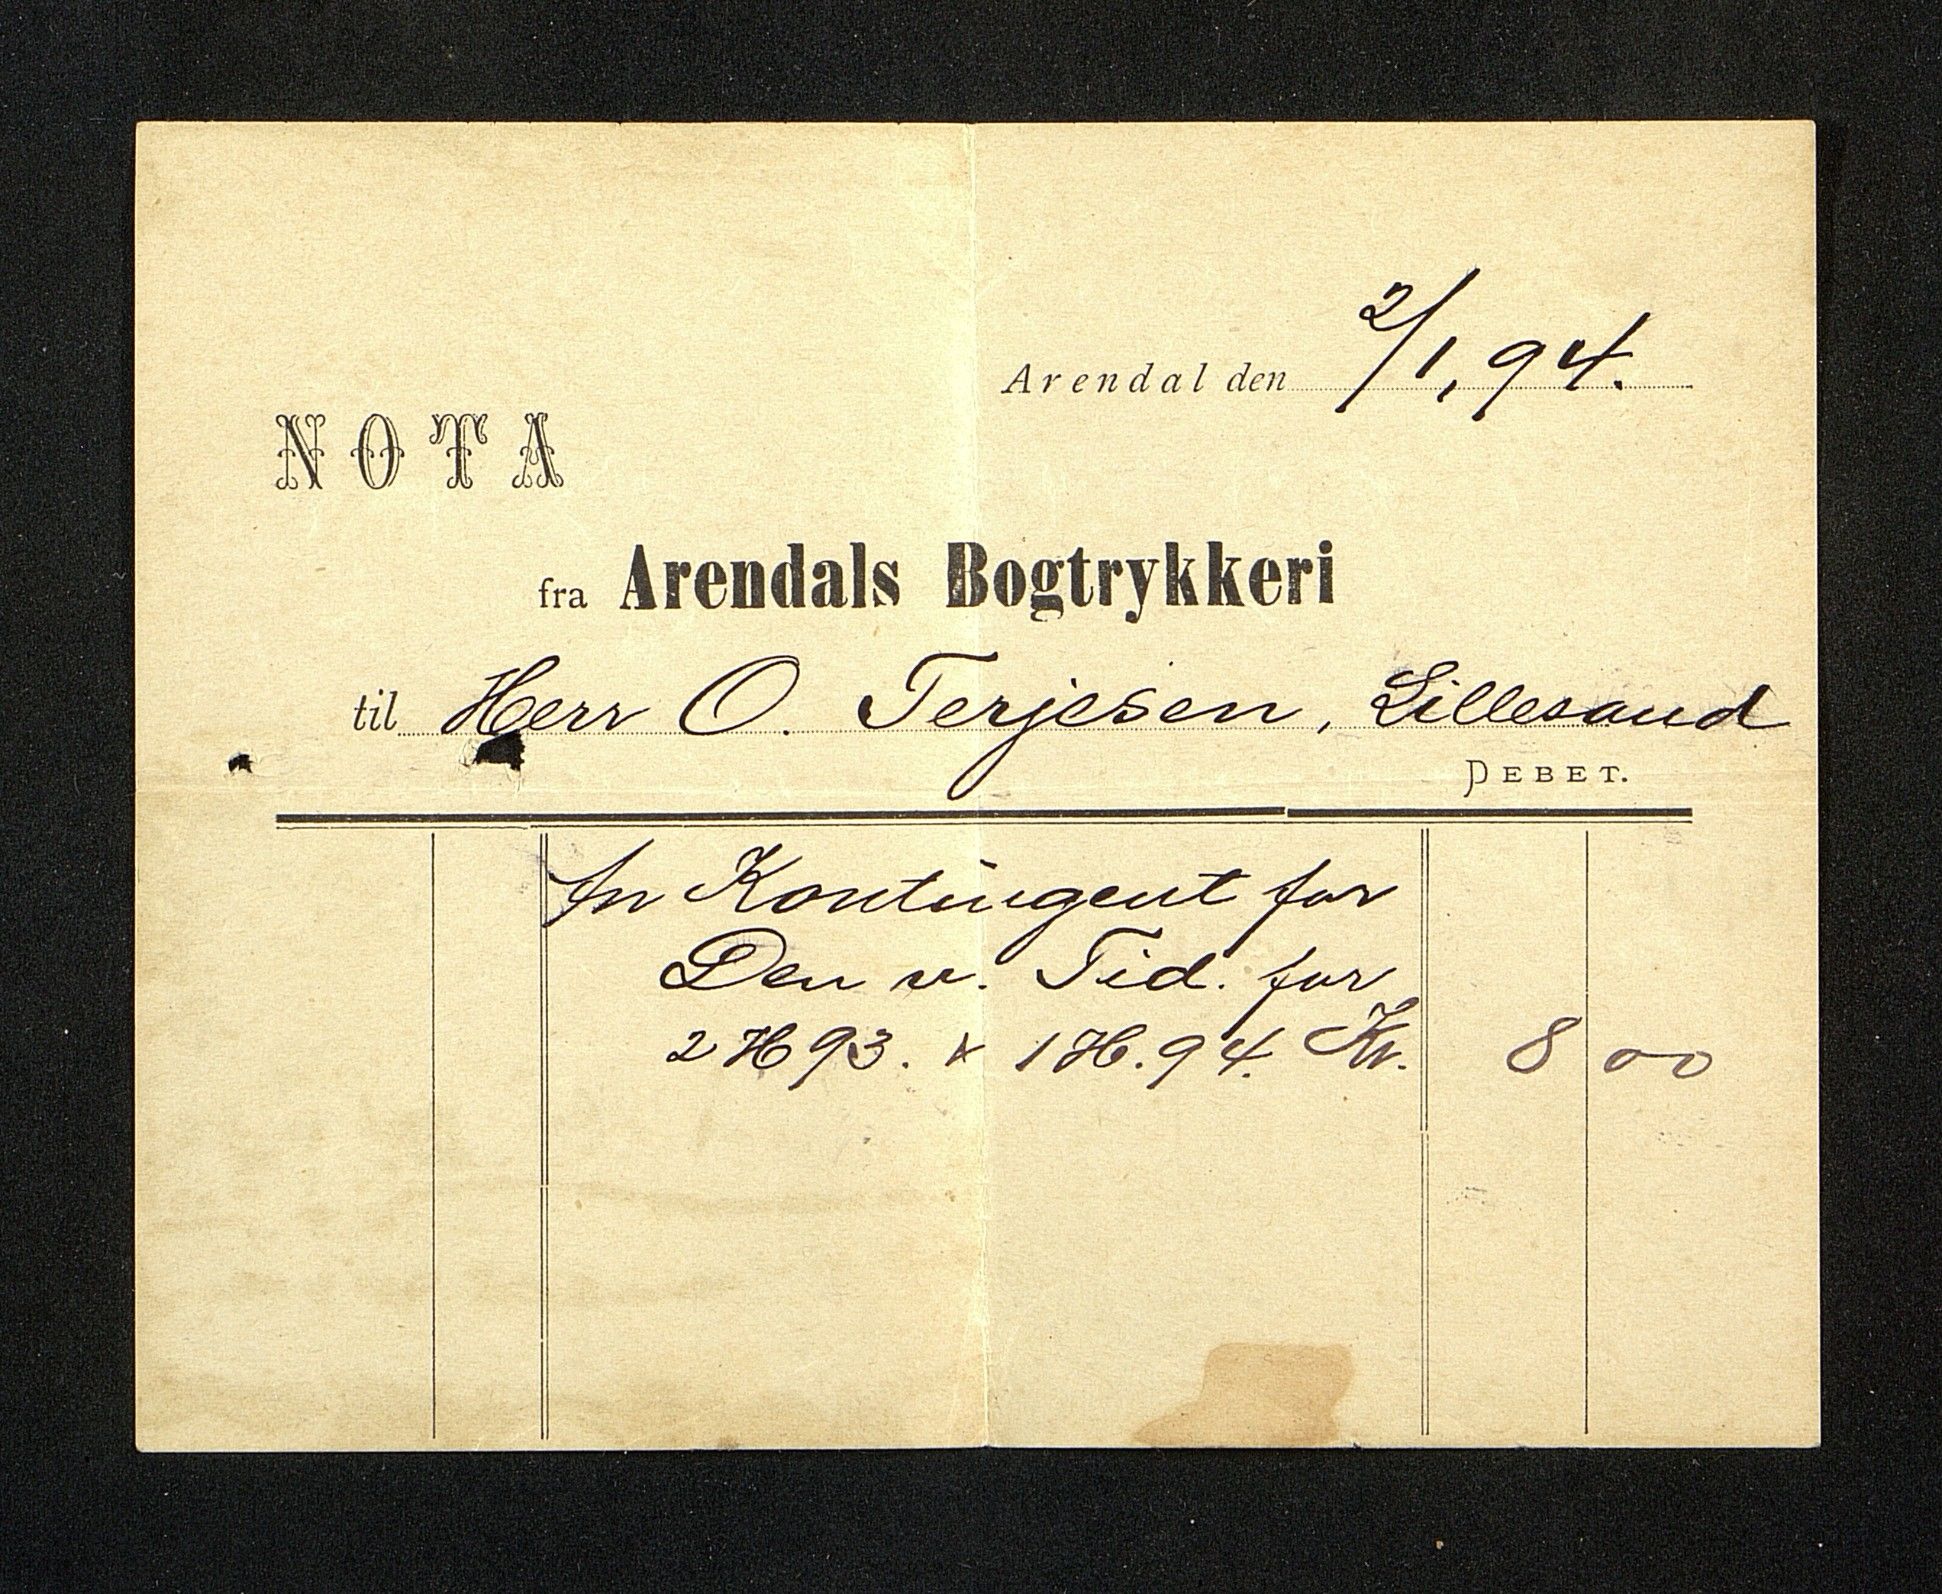 Arendal den 2/1, 94.
NOTA
fra Arendals Bogtrykkeri
til Herr O. Terjesen, Lillesand
DEBET.
An Kontingent for
Den v. Tid. for
2 H 93. & 1 H. 94. Kr. 8 00